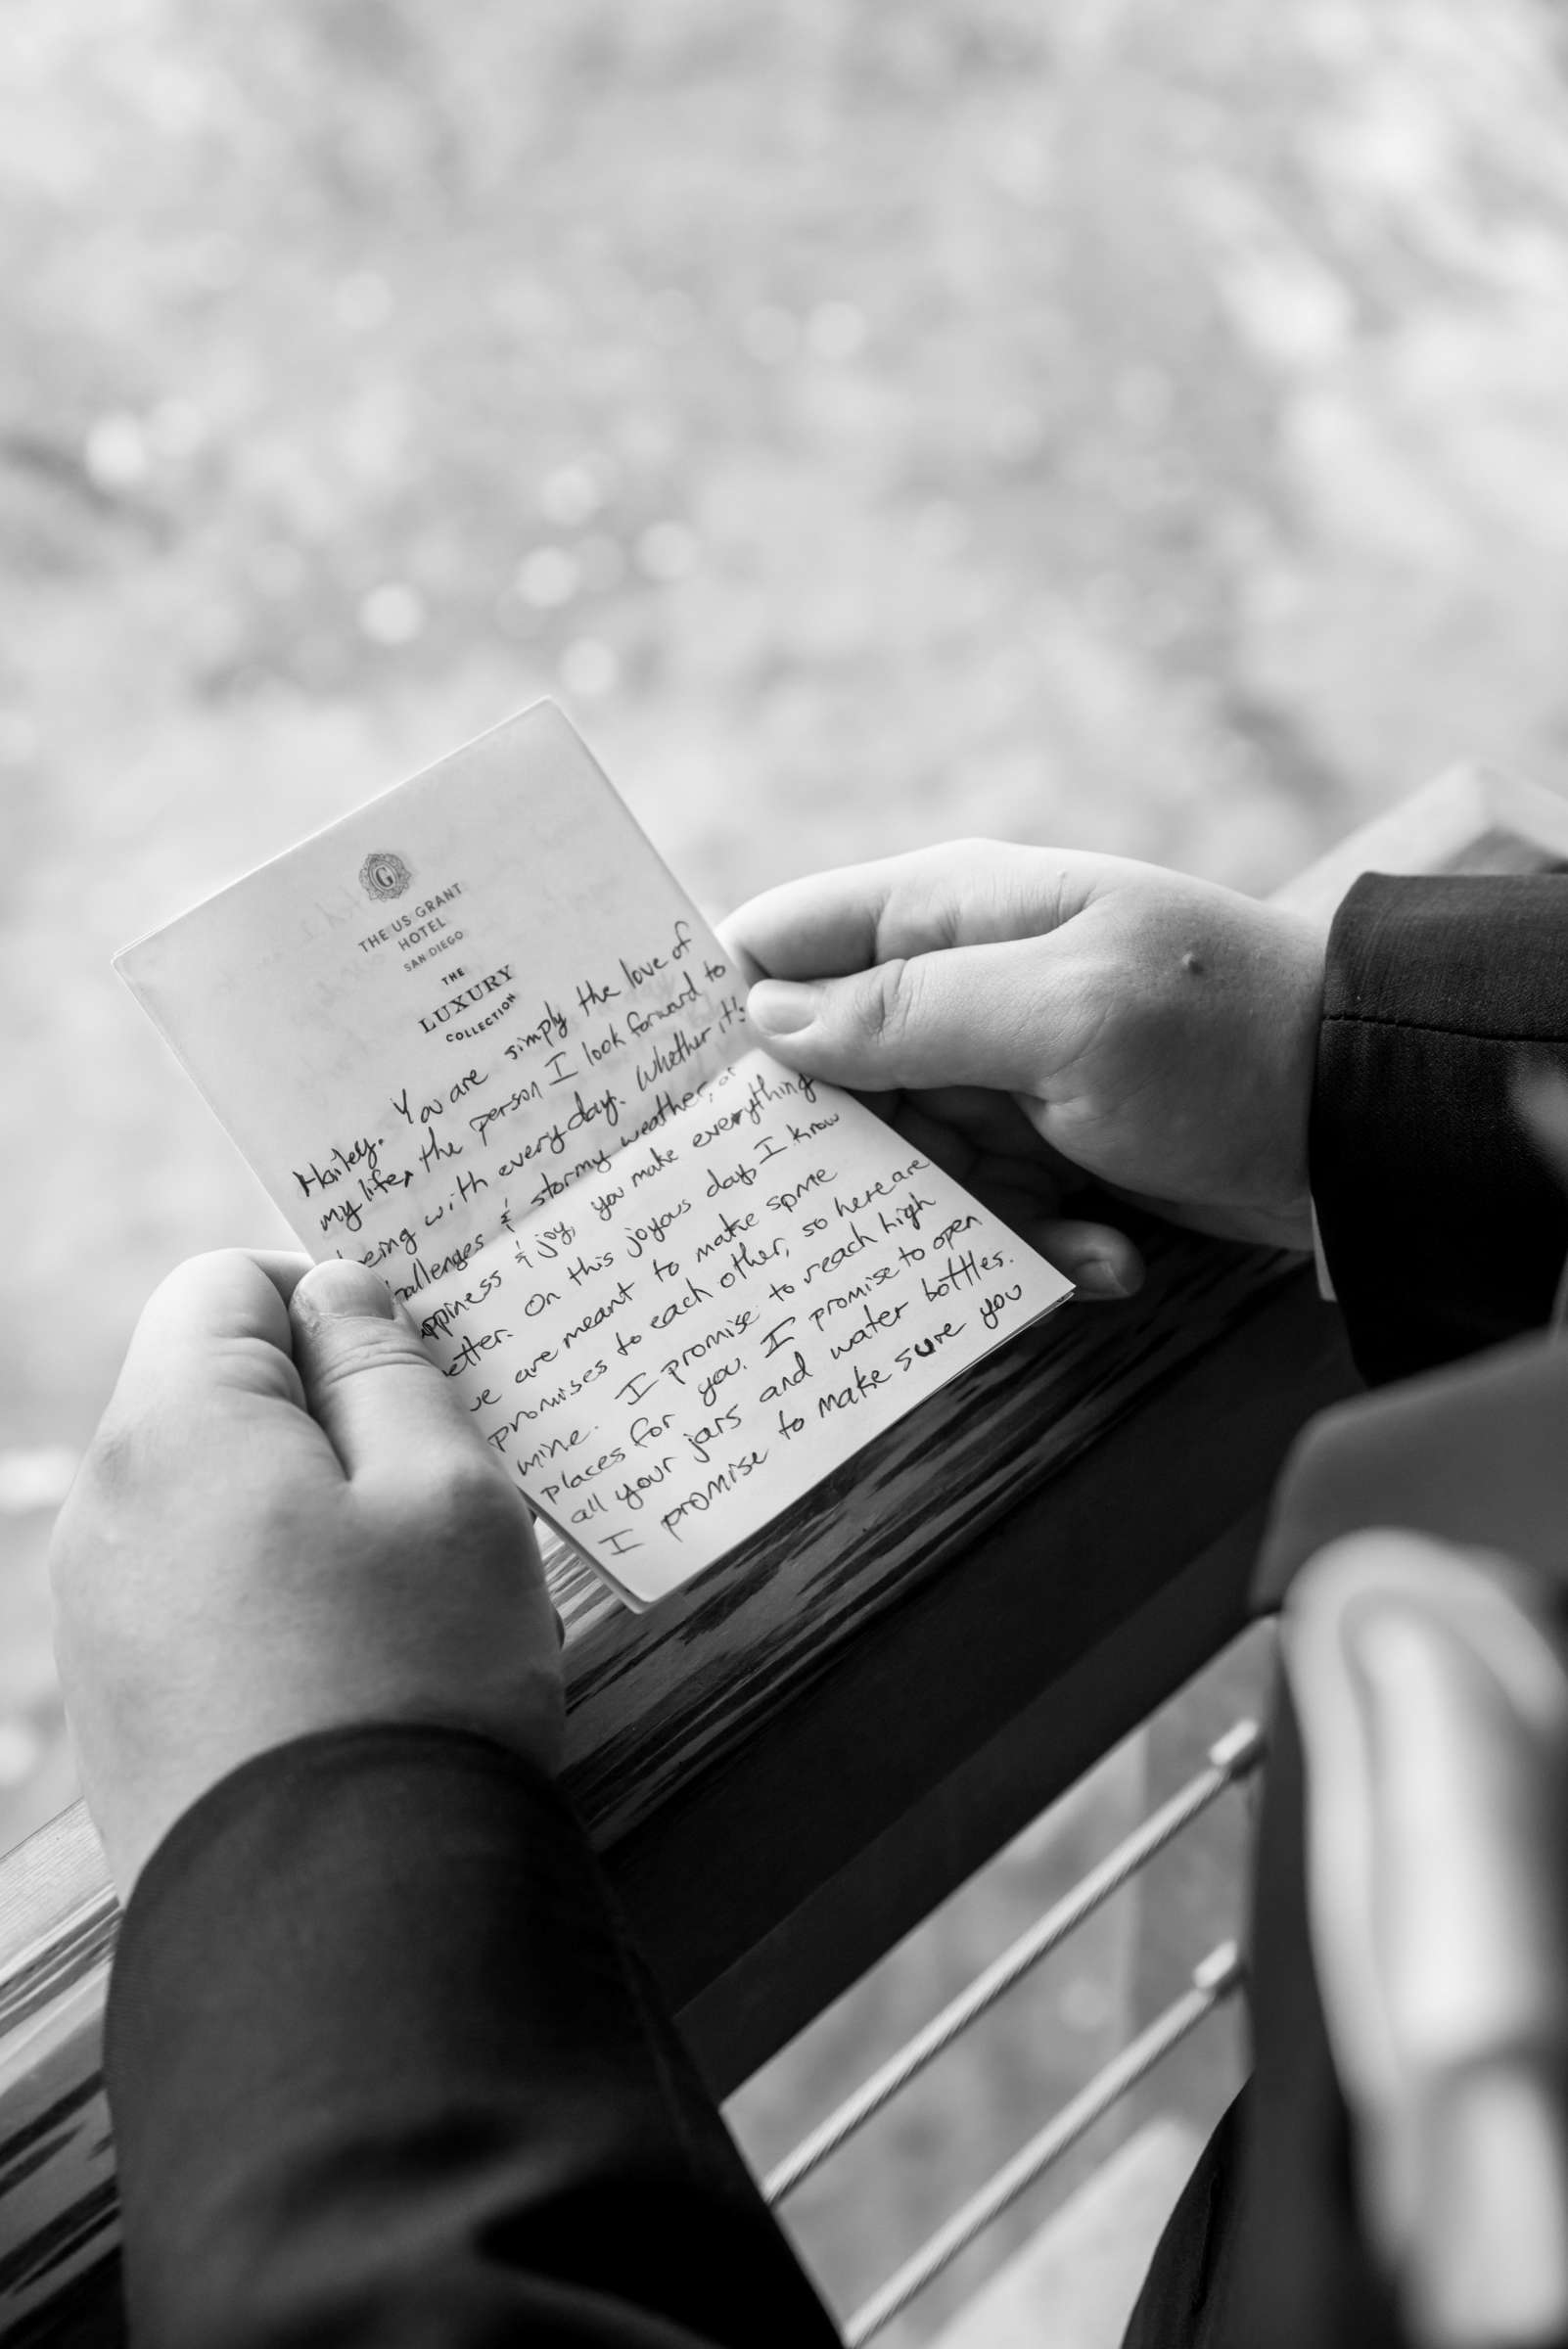 G
THE US GRANT
HOTEL
SAN DIEGO
THE
LUXURY
COLLECTION
Hailey. You are simply the love of
my life, the person I look forward to
being with every day. Whether it's
hallenges & stormy weather, or
ppiness & joy, you make everything
etter. On this joyous day, I know
we are meant to make some
promises to each other, so here are
mine. I promise to reach high
places for you. I promise to open
all your jars and water bottles.
I promise to make sure you